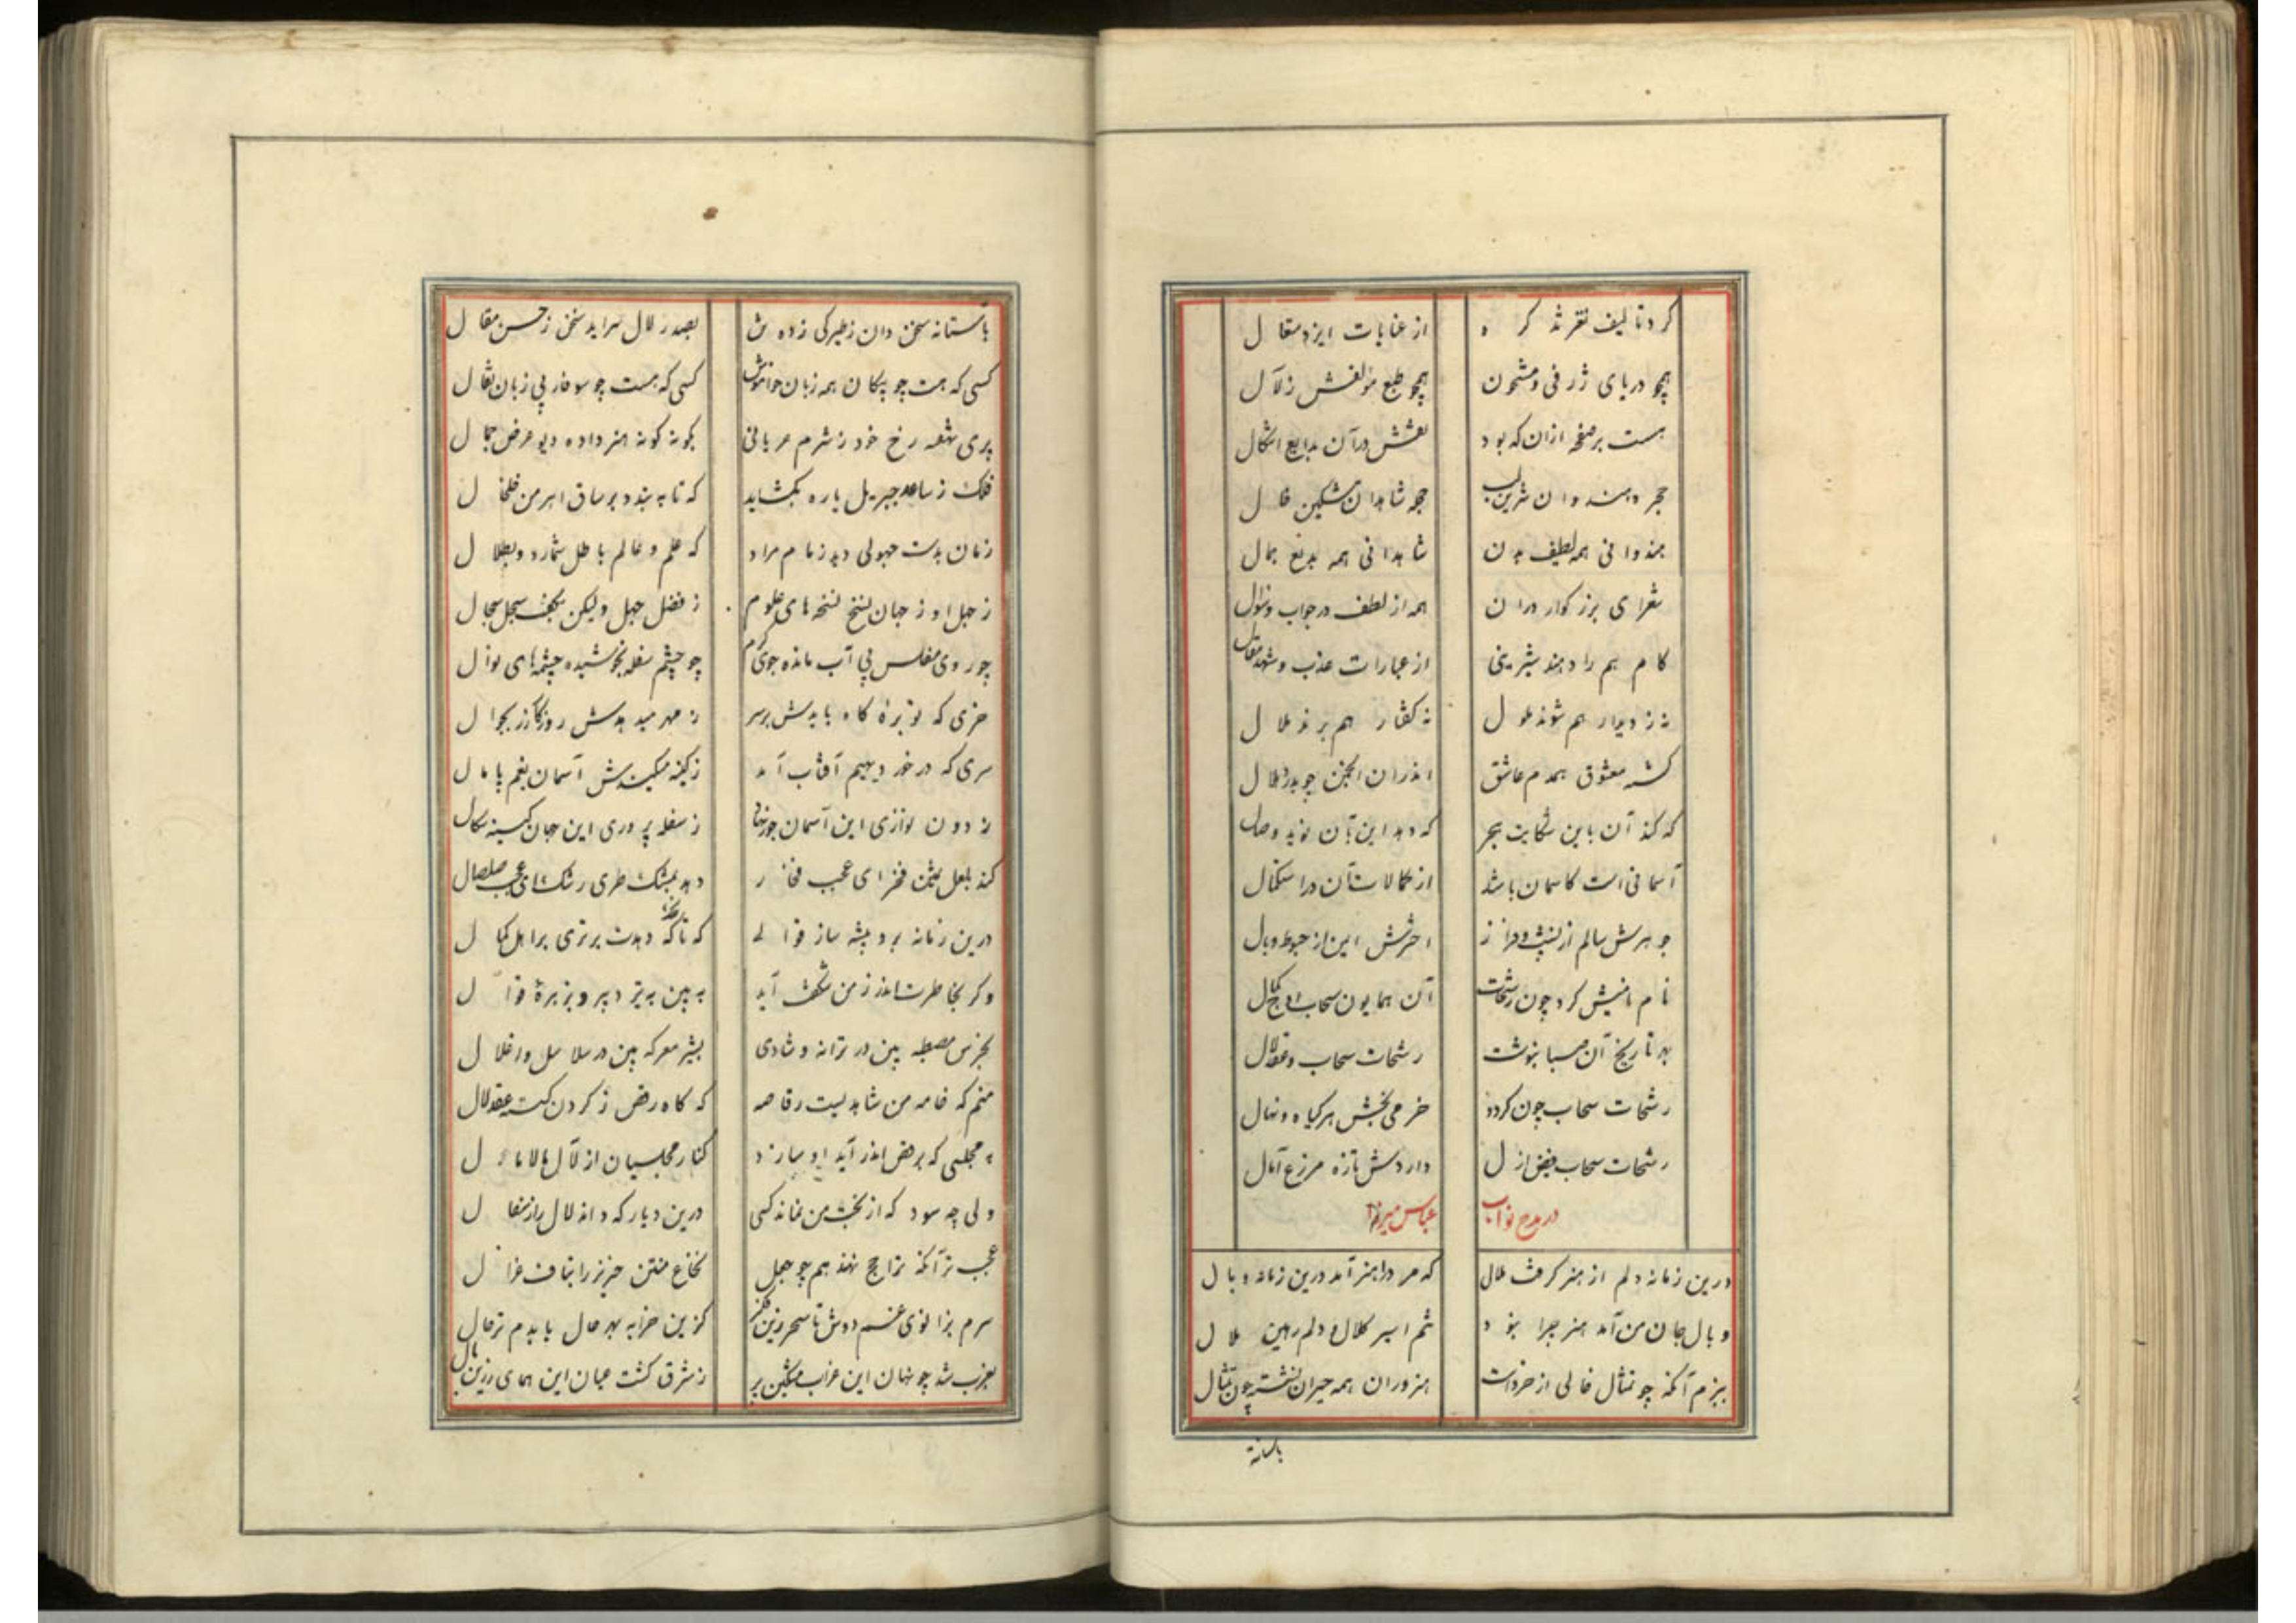 کرد تالیف نغز تذکره
از عنایات ایزد متعال
همچو دریای ژرفی و مشحون
همچو طبع مؤلفش زلآل
هست بر صفحه ازان که بود
نقشش در آن بدایع اشکال
هندوانی همه لطیف بدن
شاهدانی همه بدیع جمال
شعرای بزرگوار دران
همه از لطف در جواب و سؤال
کام هم را دهند شیرینی
از عبارات عذب و شهد مقال
نه ز دیدار هم شوند ملول
نه ز گفتار هم برند ملال
گشته معشوق همدم عاشق
اندران انجمن چو بدر و هلال
که کند آن باین شکایت هجر
که دهد این بآن نوید وصال
آسمانی است کاسمان باشد
از کمالات آن در استکمال
جوهرش سالم از نشیب و فراز
اخترش ایمن از هبوط و وبال
نام نامیش کرد چون رشحات
آن همایون سحاب اوج کمال
بهر تاریخ آن صبا بنوشت
رشحات سحاب و عقد لال
رشحات سحاب چون گردد
خرمی بخش هر گیاه و نهال
رشحات سحاب فیض ازل
دارد ش تازه مرزع آمال
در مدح نواب
عباس میرزا
درین زمانه دلم از هنر گرفت ملال
که مر مرا هنر آمد درین زمانه وبال
وبال جان من آمد هنر چرا نبود
تنم اسیر کلال و دلم رهین ملال
ببزم آنکه چو تمثال خالی از خرد است
هنروران همه حیران نشسته چون تمثال
باستانه
باستانه سخن دان ز طیرگی زده
بصدر لال سراید سخن ز حسن مقال
کسی که هست چو پیکان همه زبان خاموش
کسی که هست چو سوفار بی زبان نقال
پری نهفته رخ خود ز شرم عریانی
بگونه گونه هنر داده دیو عرض جمال
فلک ز ساعد جبریل یاره بگشاید
که تا به بندد بر ساق اهرمن خلخال
زمان بدست جهولی دهد زمام مراد
که علم و عالم باطل شمارد و بطال
ز جهل او ز جهان نسخ نسخه های علوم
ز فضل جهل ولیکن بکف سجل سجال
چو روی مفلس بی آب مانده جوی کرم
چو چشم سفله بخوشیده چشمه های نوال
خری که توبره کاه بایدش بر سر
ز مهر میدهدش روزگار زر بجوال
سری که در خور دیهیم آفتاب آمد
ز کینه میکندش آسمان بغم پامال
ز دون نوازی این آسمان جور نهاد
ز سفله پروری این جهان کینه سگال
کند بلعل ثمین فخر ای عجب فخار
دهد بمشک طری رشک ای عجب صلصال
درین زمانه برو پیشه ساز قوالی
که تا که دهدت برتری بر اهل کمال
وگر بخاطرت اندر ز من شگفت آید
به بین به تیر دبیر و بزهره قوال
بخرس مصطبه بین در ترانه و شادی
بشیر معرکه بین در سلاسل و اغلال
منم که خامه من شاهدیست رقاصه
که گاه رقص ز گردن گسسته عقد لال
به مجلسی که برقص اندر آید او سازد
کنار مجلسیان از لآل مالامال
ولی چه سود که از بخت من نماند کسی
درین دیار که داند لآل را ز سفال
سرم بزانوی غم دوش تا سحر زین فکر
کزین خرابه بهر حال بایدم ترحال
بغرب شد چو نهان این غراب مشکین پر
ز شرق گشت عیان این همای زرین بال